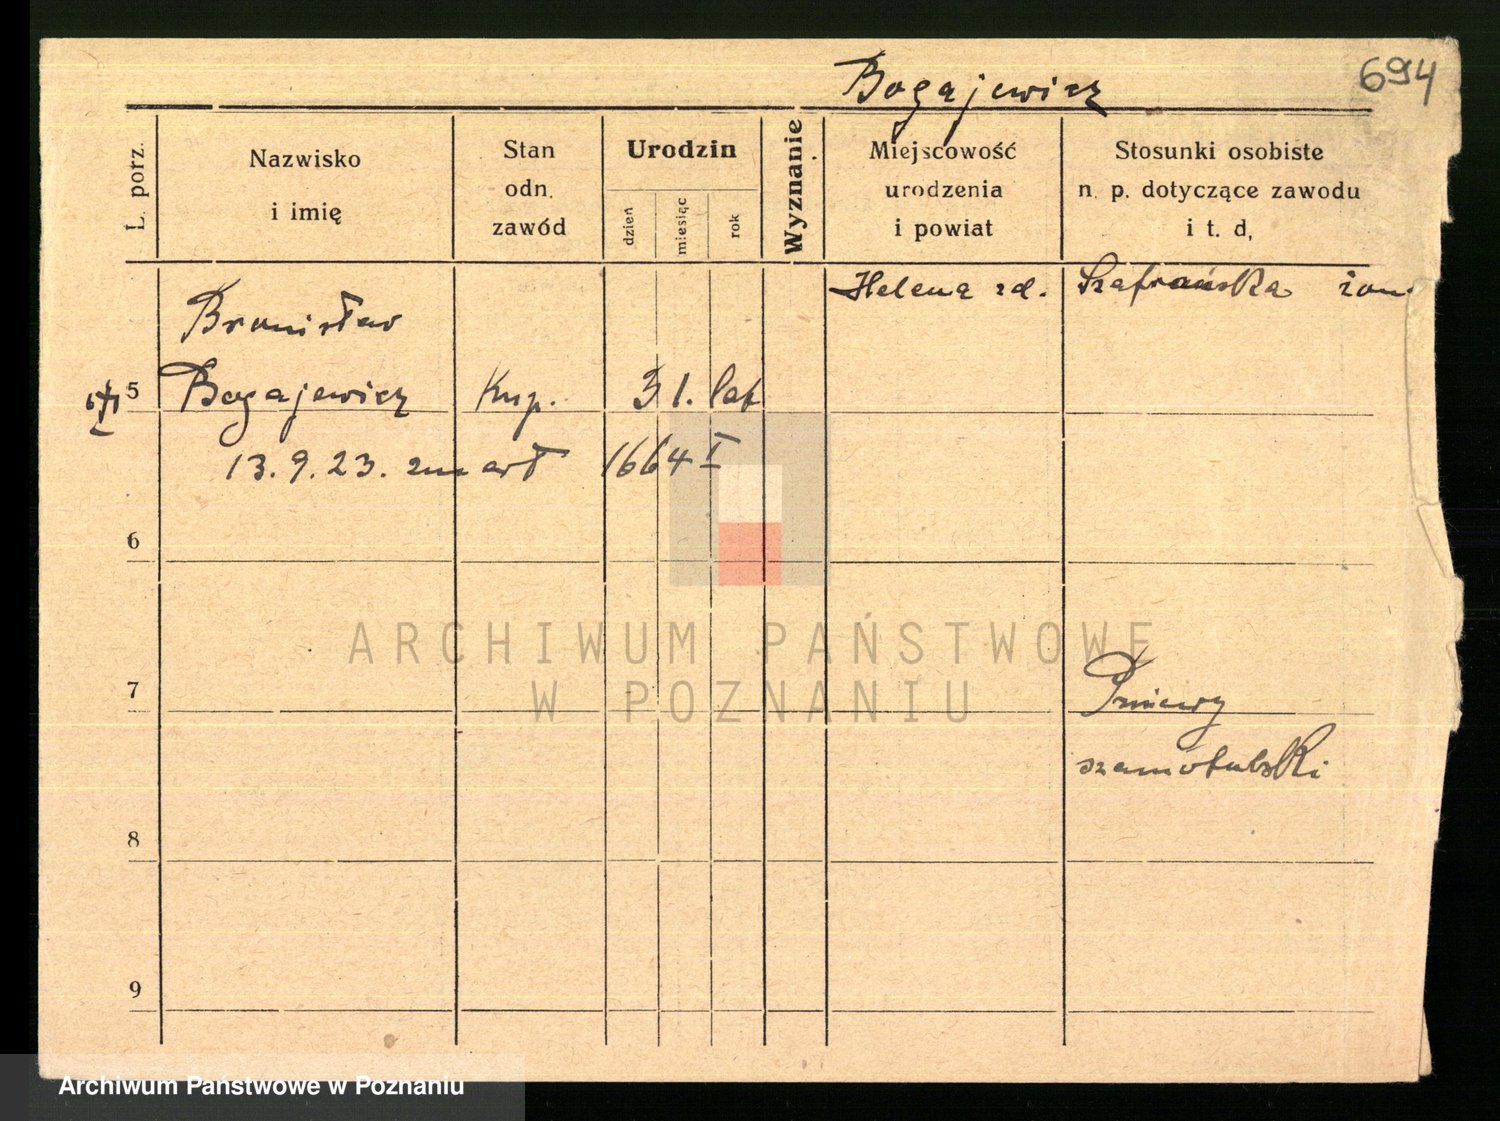 Bogajewicz
694
L. porz.
Nazwisko
i imię
Stan
odn.
zawód
Urodzin
dzień
miesiąc
rok
Wyznanie
Miejscowość
urodzenia
i powiat
Stosunki osobiste
n. p. dotyczące zawodu
i t. d,
Helena zd. Szafrańska żon.
Bronisław
5 Bogajewicz Kup. 31. lat
13.9.23. zmarł 1664 I
6
ARCHIWUM PAŃSTWOWE
W POZNANIU
7 Pniewy
szamotulski
8
9
Archiwum Państwowe w Poznaniu